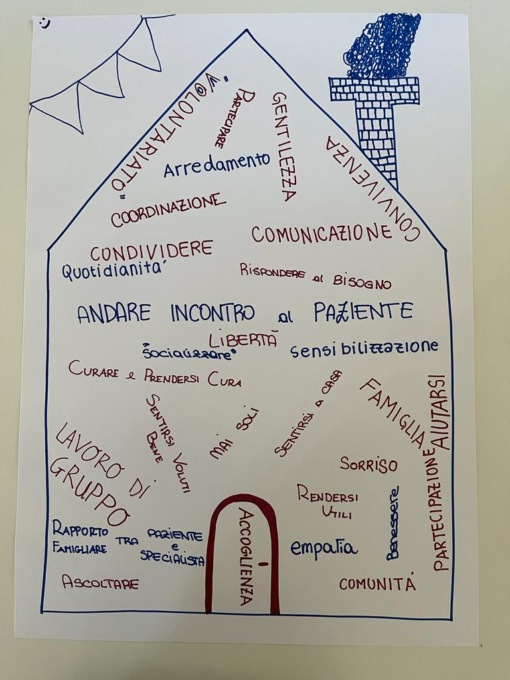 "V@LONTARIATO"
PARTECIPARE
GENTILEZZA
CONVIVENZA
Arredamento
COORDINAZIONE
COMUNICAZIONE
CONDIVIDERE
Quotidianità
RISPONDERE al BISOGNO
ANDARE INCONTRO al PAZIENTE
LIBERTÀ
"Socializzare"
Sensibilizzazione
CURARE e PRENDERSI CURA
SENTIRSI VOLUTI
BENE
MAI SOLI
SENTIRSI a CASA
FAMIGLIA
AIUTARSI
LAVORO DI
GRUPPO
SORRISO
PARTECIPAZIONE
RENDERSI
UTILI
Benessere
RAPPORTO TRA PAZIENTE
FAMIGLIARE e
SPECIALISTA
ACCOGLIENZA
empatia
ASCOLTARE
COMUNITÁ